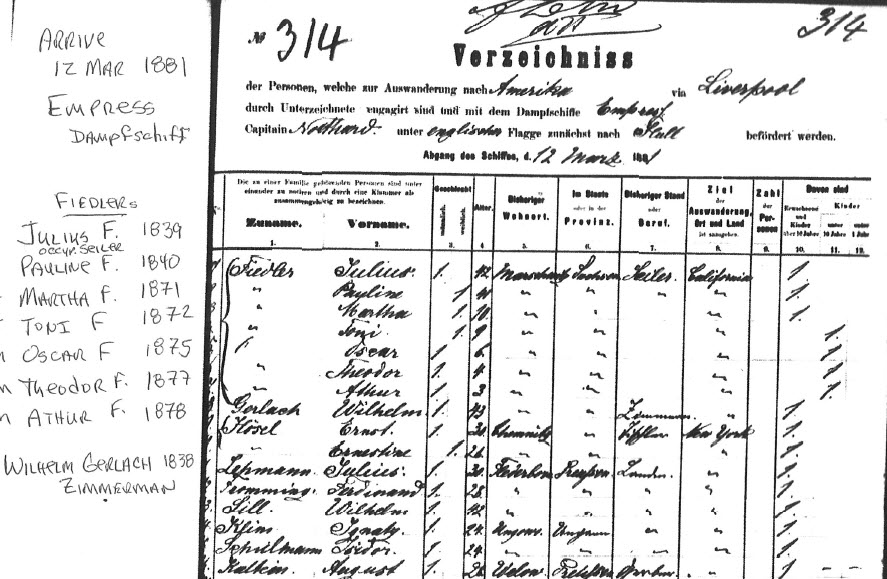 ARRIVE
12 MAR 1881
EMPRESS
DAMPFSCHIFF
FIEDLERS
JULIUS F. 1839
OCCUP. SEILER
PAULINE F. 1840
MARTHA F. 1871
TONI F 1872
OSCAR F 1875
THEODOR F. 1877
ATHUR F. 1878
WILHELM GERLACH 1838
ZIMMERMAN
№ 314
314
Verzeichniss
der Personen, welche zur Auswanderung nach Amerika via Liverpool
durch Unterzeichnete engagirt sind und mit dem Dampfschiffe Empress
Capitain Northard. unter englischer Flagge zunächst nach Hull befördert werden.
Abgang des Schiffes, d. 12 Marz 1881
Die zu einer Familie gehörenden Personen sind unter
einander zu notiren und durch eine Klammer als
zusammengehörig zu bezeichnen.
Zuname. Vorname.
Geschlecht
männlich. weiblich.
Alter.
Bisheriger
Wohnort.
Im Staate
oder in der
Provinz.
Bisheriger Stand
oder
Beruf.
Ziel
der
Auswanderung,
Ort und Land
ist anzugeben.
Zahl
der
Per-
sonen
Davon sind
Erwachsene
und
Kinder
über 10 Jahre
Kinder
unter
10 Jahre
unter
1 Jahr
1. 2. 3. 4. 5. 6. 7. 8. 9. 10. 11. 12.
Fiedler Julius. 1. 42 Sachsen Seiler. California 1.
" Pauline 1 41 " " " " 1.
" Martha 1. 10 " " " " 1.
" Toni 1 9 " " " " 1.
" Oscar 1 6 " " " " 1.
" Theodor 1 4 " " " " 1.
" Athur 1 3 " " " " 1.
Gerlach Wilhelm 1. 43 " " Zimmerm. " 1.
Hösel Ernst. 1. 30 Chemnitz " Tischler New York 1.
" Ernestine 1. 26 " " " " 1.
Lehmann Julius. 1. 30 Preussen Landm. " 1.
Ferdinand 1. 28 " " " " 1.
Sill. Wilhelm 1. 42 " " " " 1.
Klein Ignatz. 1. 24 Ungarn Ungarn " " 1.
Schulmann Isidor. 1. 24 " " " " 1.
August 1. 26 1